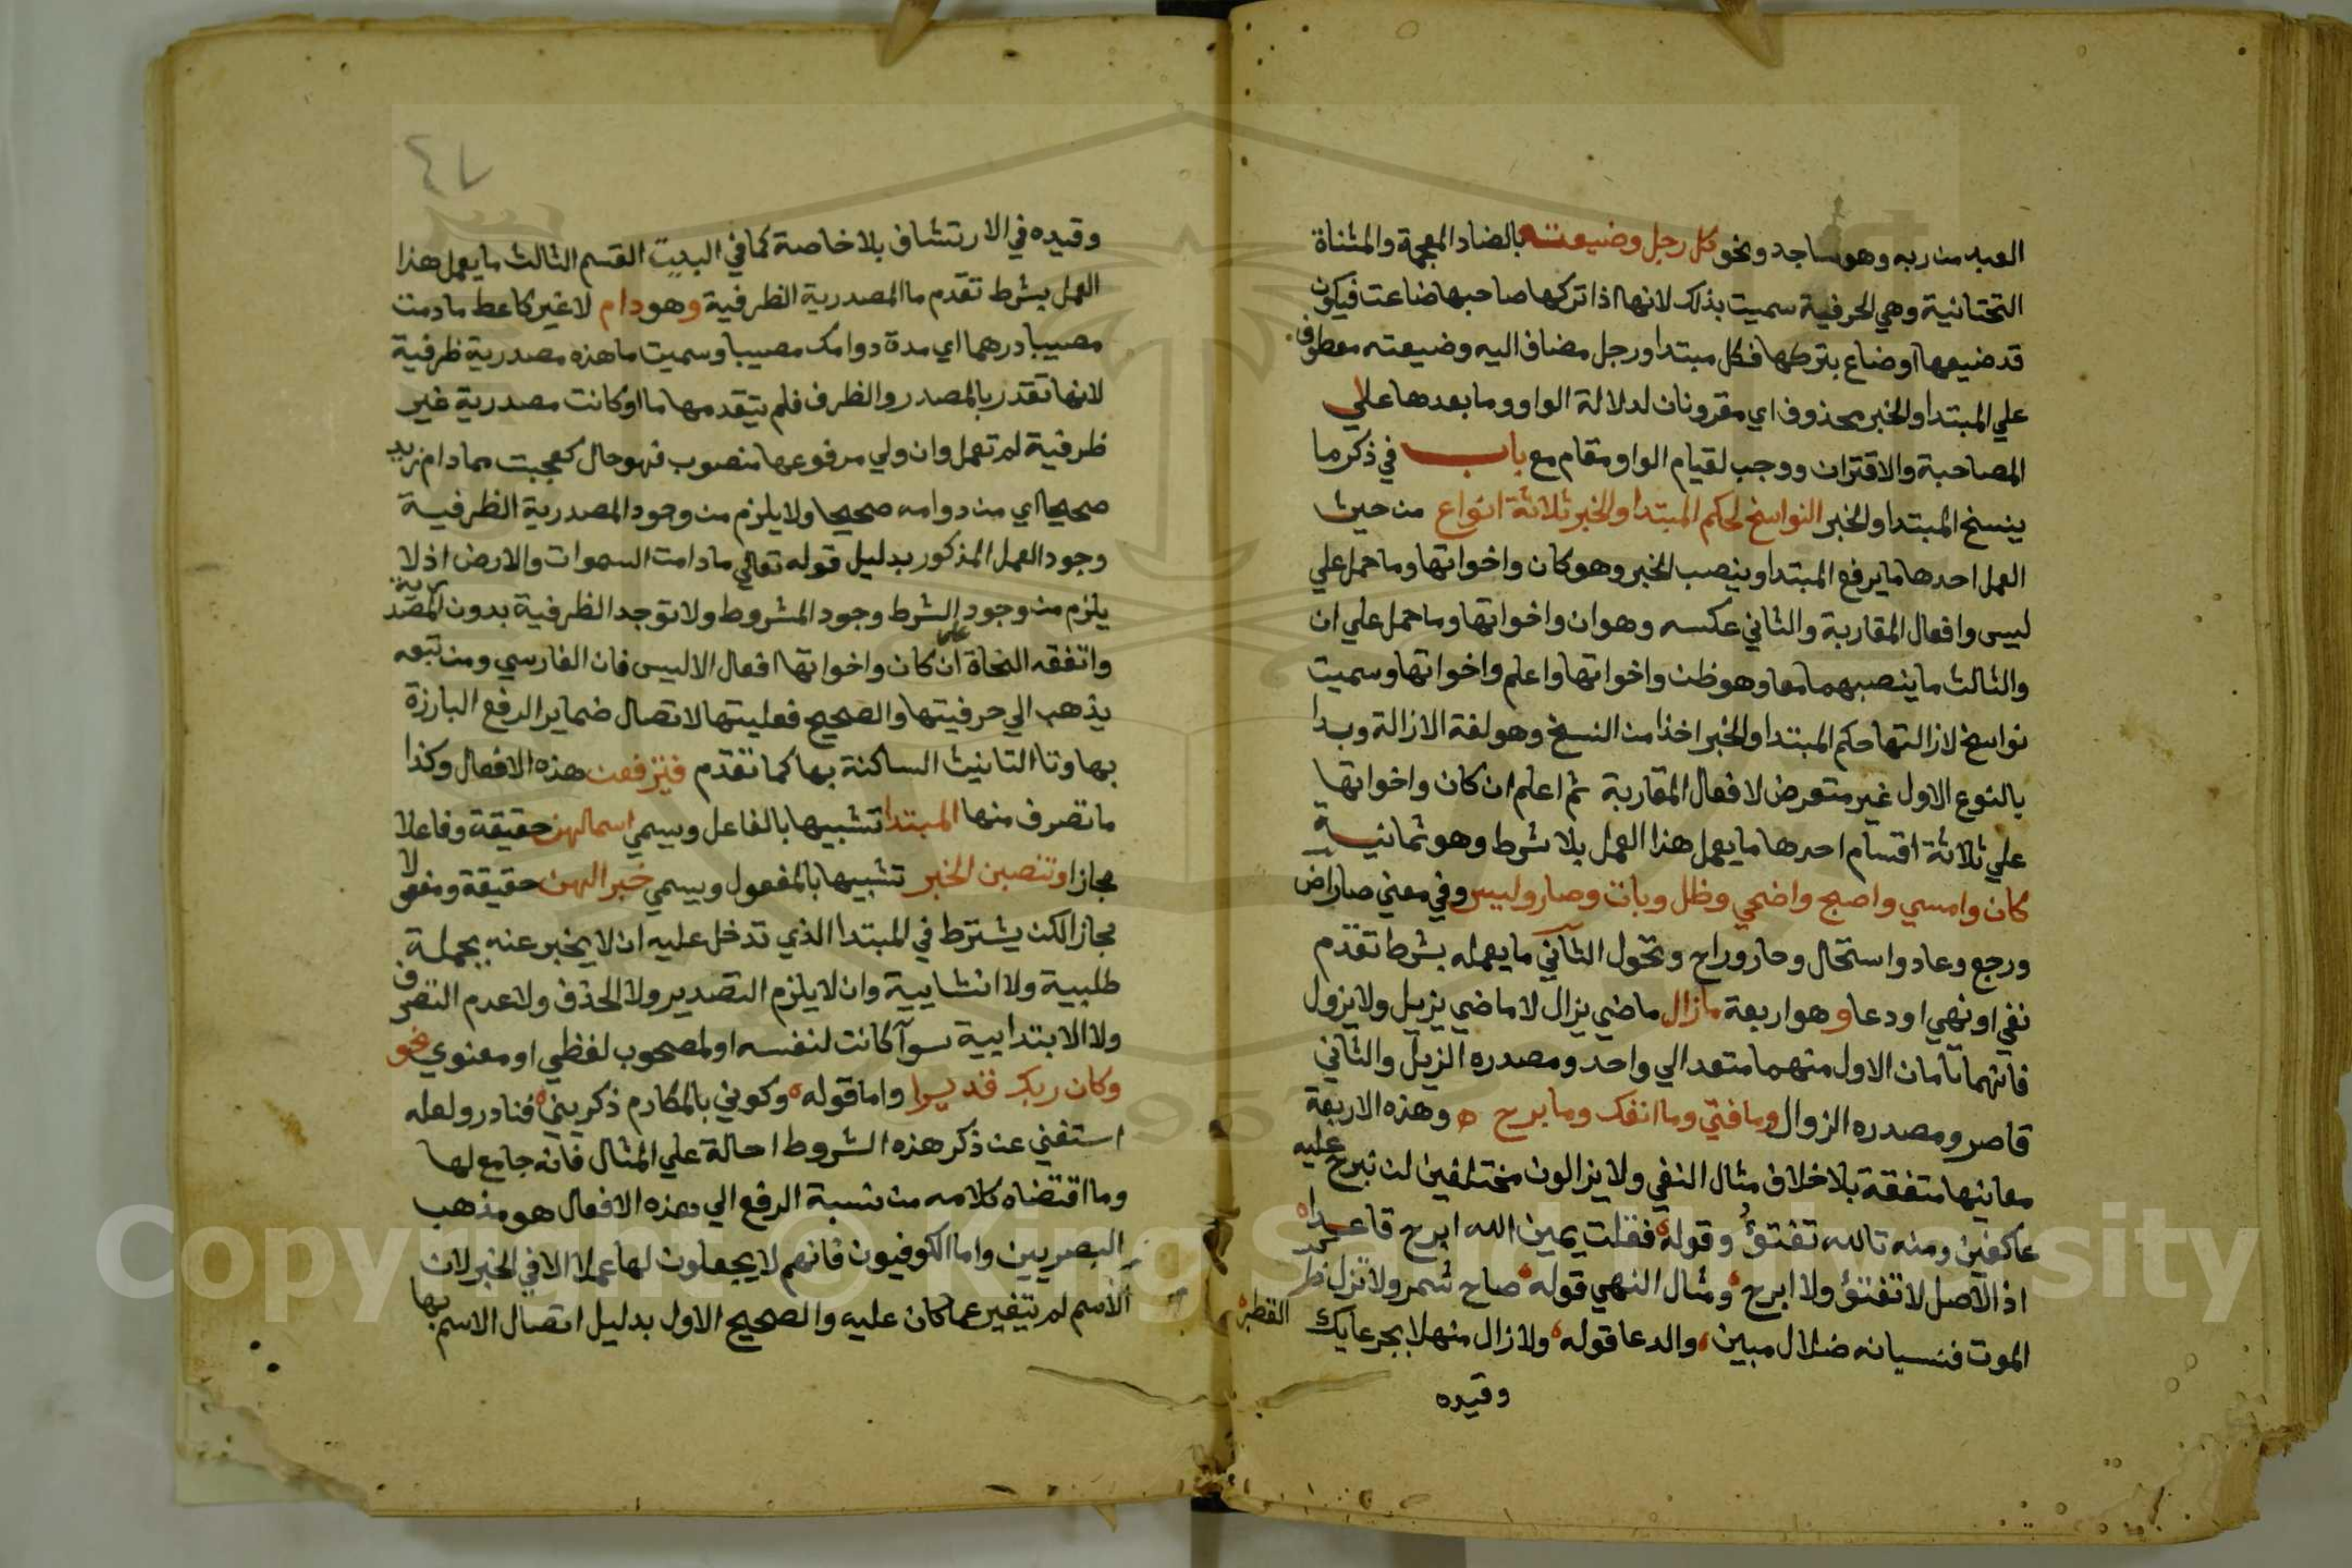 العبد من ربه وهو ساجد ونحو كل رجل وضيعته بالضاد المعجمة والمثناة
التحتانية وهي الحرفية سميت بذلك لانها اذا تركها صاحبها ضاعت فيكون
قد ضيعها اوضاع بتركها فكل مبتدا ورجل مضاف اليه وضيعته معطوف
علي المبتدا والخبر محذوف اي مقرونان لدلالة الواو وما بعدها علي
المصاحبة والاقتران ووجب لقيام الواو مقام مع باب في ذكر ما
ينسخ المبتدا والخبر النواسخ لحكم المبتدا والخبر ثلاثة انواع من حيث
العمل احدها ما يرفع المبتدا وينصب الخبر وهو كان واخواتها وما حمل علي
ليس وافعال المقاربة والثاني عكسه وهو ان واخواتها وما حمل علي ان
والثالث ما ينصبهما معا وهو ظن واخواتها واعلم واخواتها وسميت
نواسخ لازالتها حكم المبتدا والخبر اخذا من النسخ وهو لغة الازالة وبدا
بالنوع الاول غير متعرض لافعال المقاربة ثم اعلم ان كان واخواتها
علي ثلاثة اقسام احدها ما يعمل هذا العمل بلا شرط وهو ثمانية
كان وامسي واصبح واضحي وظل وبات وصار وليس وفي معني صار اض
ورجع وعاد واستحال وحار وراح وتحول الثاني ما يعمله بشرط تقدم
نفي او نهي او دعا وهو اربعة مازال ماضي يزال لا ماضي يزيل ولا يزول
فانهما تامان الاول منهما متعد الي واحد ومصدره الزيل والثاني
قاصر ومصدره الزوال وما فتئ وما انفك وما برح ه وهذه الاربعة
معانيها متفقة بلا خلاف مثال النفي ولا يزالون مختلفين لن نبرح عليه
عاكفين ومنه تالله تفتؤ وقوله فقلت يمين الله ابرح قاعدا
اذ الاصل لا تفتؤ ولا ابرح ومثال النهي قوله صاح شمر ولا تزل
الموت فنسيانه ضلال مبين والدعا قوله ولا زال منهلا بجرعايك القطر
وقيده
٤٧
وقيده في الارتشاف بلا خاصة كما في البيت القسم الثالث ما يعمل هذا
العمل بشرط تقدم ما المصدرية الظرفية وهو دام لا غير كاعط ما دمت
مصيبا درهما اي مدة دوامك مصيبا وسميت ما هذه مصدرية ظرفية
لانها تقدر بالمصدر والظرف فلم يتقدمها ما او كانت مصدرية غير
ظرفية لم تعمل وان ولي مرفوعها منصوب فهو حال كعجبت مما دام زيد
صحيحا اي من دوامه صحيحا ولا يلزم من وجود المصدرية الظرفية
وجود العمل المذكور بدليل قوله تعالي ما دامت السموات والارض اذ لا
يلزم من وجود الشرط وجود المشروط ولا توجد الظرفية بدون المصدرية
واتفقه النحاة علي ان كان واخواتها افعال الا ليس فان الفارسي ومن تبعه
يذهب الي حرفيتها والصحيح فعليتها لاتصال ضماير الرفع البارزة
بها وتا التانيث الساكنة بها كما تقدم فيرفعن هذه الافعال وكذا
ما تصرف منها المبتدا تشبيها بالفاعل ويسمي اسما لهن حقيقة وفاعلا
مجازا وتنصبن الخبر تشبيها بالمفعول ويسمي خبرا لهن حقيقة ومفعولا
مجازا لكن يشترط في المبتدا الذي تدخل عليه ان لا يخبر عنه بجملة
طلبية ولا انشايية وان لا يلزم التصدير ولا الحذف ولا عدم التصرف
ولا الابتدايية سوآ كانت لنفسه او لمصحوب لفظي او معنوي نحو
وكان ربك قديرا واما قوله وكوني بالمكارم ذكريني فنادر ولعله
استغني عن ذكر هذه الشروط احالة علي المثال فانه جامع لها
وما اقتضاه كلامه من نسبة الرفع الي هذه الافعال هو مذهب
البصريين واما الكوفيون فانهم لا يجعلون لها عملا الا في الخبر لان
الاسم لم يتغير عما كان عليه والصحيح الاول بدليل اتصال الاسم بها
Copyright © King Saud University
1957